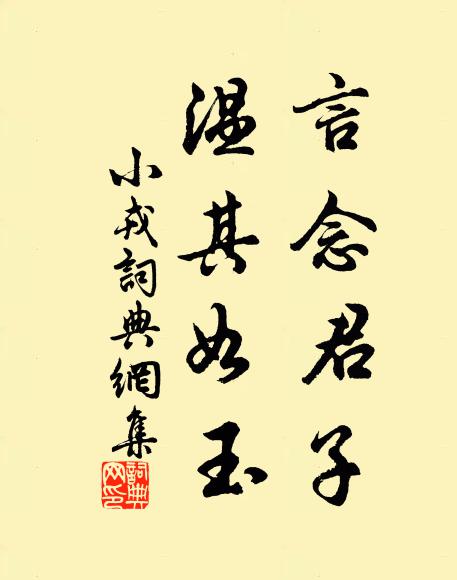 言念君子
温其如玉
小戎詞典網集
詞典网印